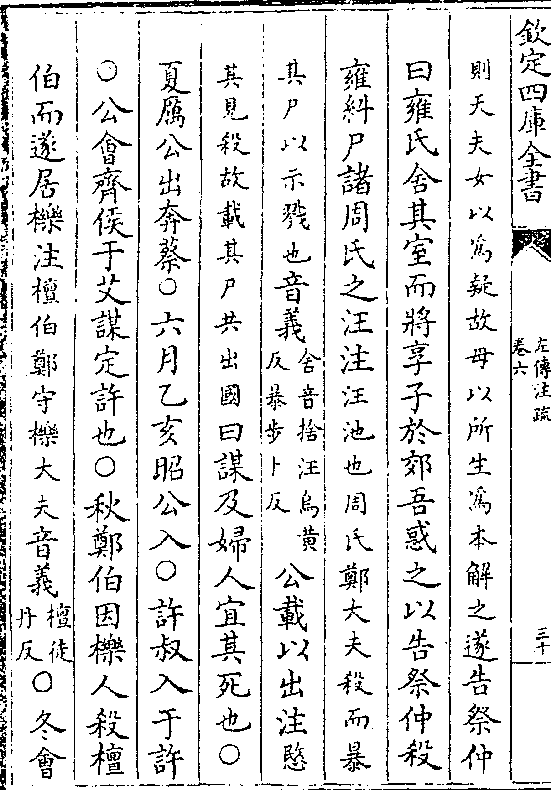 欽定四庫全書
左傳注疏
卷六
三十
則天夫女以為疑故母以所生為本解之遂告祭仲
曰雍氏舍其室而將享子於郊吾惑之以告祭仲殺
雍糾尸諸周氏之汪注汪池也周氏鄭大夫殺而暴
其尸以示戮也音義舍音捨汪烏黃反暴步卜反公載以出注愍
其見殺故載其尸共出國曰謀及婦人宜其死也○
夏厲公出奔蔡○六月乙亥昭公入○許叔入于許
○公會齊侯于艾謀定許也○秋鄭伯因櫟人殺檀
伯而遂居櫟注檀伯鄭守櫟大夫音義檀徒丹反○冬會